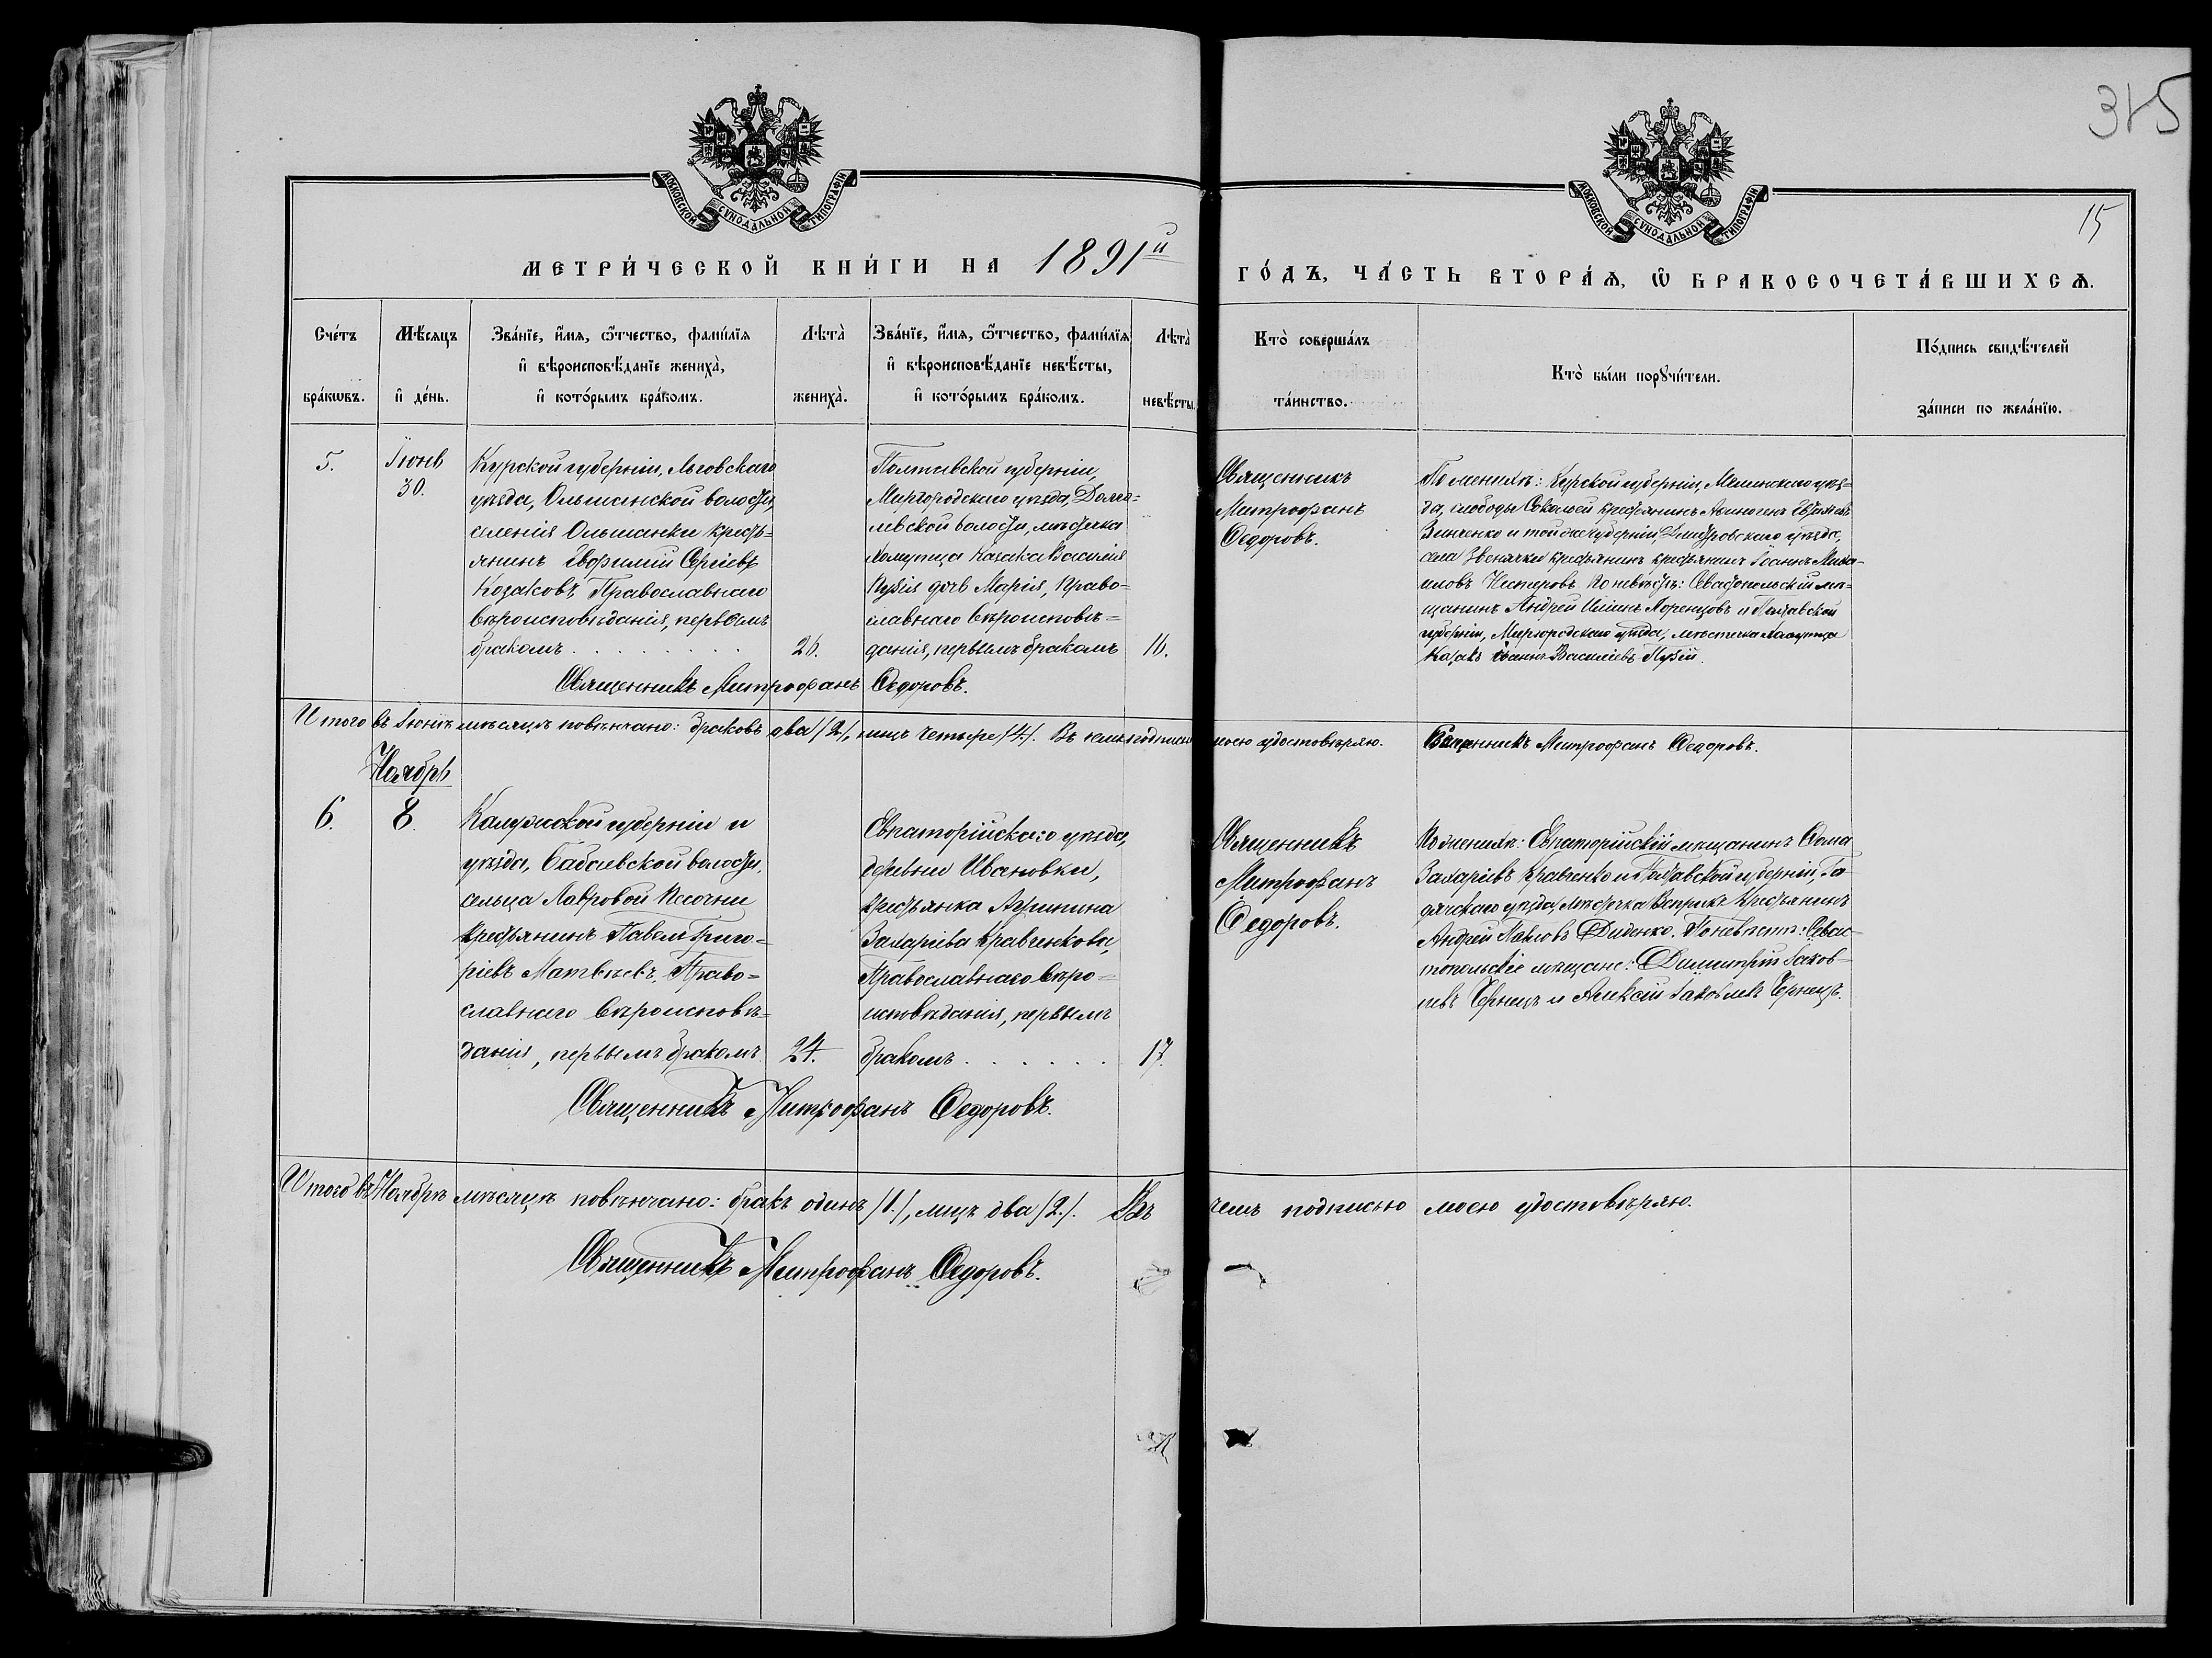 315
15
МОСКОВСКОЙ СѴНОДАЛЬНОЙ ТИПОГРАФІИ
МОСКОВСКОЙ СѴНОДАЛЬНОЙ ТИПОГРАФІИ
МЕТРИ́ЧЕСКОЙ КНИ́ГИ НА 1891й
ГО́ДЪ, ЧА́СТЬ ВТОРА́Ѧ, Ѽ БРАКОСОЧЕТА́ВШИХСѦ.
Сче́тъ
бра́кѡвъ.
Мѣ́сяцъ
и҆ де́нь.
Зва́нїе, и҆́мя, ѻ҆́тчество, фами́лїя
и҆ вѣроисповѣ́данїе жениха̀,
и҆ кото́рымъ бра́комъ.
Лѣта̀
жениха̀.
Зва́нїе, и҆́мя, ѻ҆́тчество, фами́лїя
и҆ вѣроисповѣ́данїе невѣ́сты,
и҆ кото́рымъ бра́комъ.
Лѣта̀
невѣ́сты.
Кто̀ соверша́лъ
та́инство.
Кто̀ бы́ли порꙋчи́тели.
По́дпись свидѣ́телей
за́писи по жела́нїю.
5.
Іюнь
30.
Курской губерніи, Льговскаго
уѣзда, Ольшанской волости,
селенія Ольшанки кресть-
янинъ Евфимій Сергіевъ
Козаковъ, Православнаго
вѣроисповѣданія, первымъ
бракомъ . . . . . . . . .
26.
Полтавской губерніи
Миргородскаго уѣзда,
левской волости, мѣстечка
Хомутца Казака Василія
Пузія дочь Марія, Право-
славнаго вѣроисповѣ-
данія, первымъ бракомъ
16.
Священникъ
Митрофанъ
Ѳедоровъ.
По женихѣ: Курской губерніи, уѣз-
да, слободы крестьянинъ
Зинченко и той же губерніи, Дмитровскаго уѣзда,
села Звенячки крестьянинъ крестьянинъ Іоаннъ Миха-
иловъ Нестеровъ По невѣстѣ: Севастопольскій мѣ-
щанинъ Андрей и Полтавской
губерніи, Миргородскаго уѣзда, мѣстечка Хомутца
Казакъ Іоаннъ Василіевъ Пузій.
Священникъ Митрофанъ Ѳедоровъ.
Итого въ Іюнѣ мѣсяцѣ повѣнчано: браковъ два /2/, лицъ четыре /4/. Въ чемъ подписью моею удостовѣряю. Священникъ Митрофанъ Ѳедоровъ.
Ноябрь
6.
8.
Калужской губерніи и
уѣзда, Бабаевской волости,
сельца Лавровой Песочни
крестьянинъ Павелъ Григо-
ріевъ Матвѣевъ, Право-
славнаго вѣроисповѣ-
данія, первымъ бракомъ
24.
Евпаторійскаго уѣзда,
деревни Ивановки,
крестьянка Агрипина
Захаріева Кравченкова,
Православнаго вѣро-
исповѣданія, первымъ
бракомъ . . . . . . .
17.
Священникъ
Митрофанъ
Ѳедоровъ.
По женихѣ: Евпаторійскій мѣщанинъ Ѳома
Захаріевъ Кравченко и Полтавской губерніи, Га-
дячскаго уѣзда, мѣстечка Веприка Крестьянинъ
Андрей Павловъ Диденко. По невѣстѣ: Севас-
топольскіе мѣщане: Димитрій Іаков-
левъ Чернецъ и Алексій Іаковлевъ Чернецъ.
Священникъ Митрофанъ Ѳедоровъ.
Итого въ Ноябрѣ мѣсяцѣ повѣнчано: бракъ одинъ /1./, лицъ два /2./. Въ чемъ подписью моею удостовѣряю.
Священникъ Митрофанъ Ѳедоровъ.